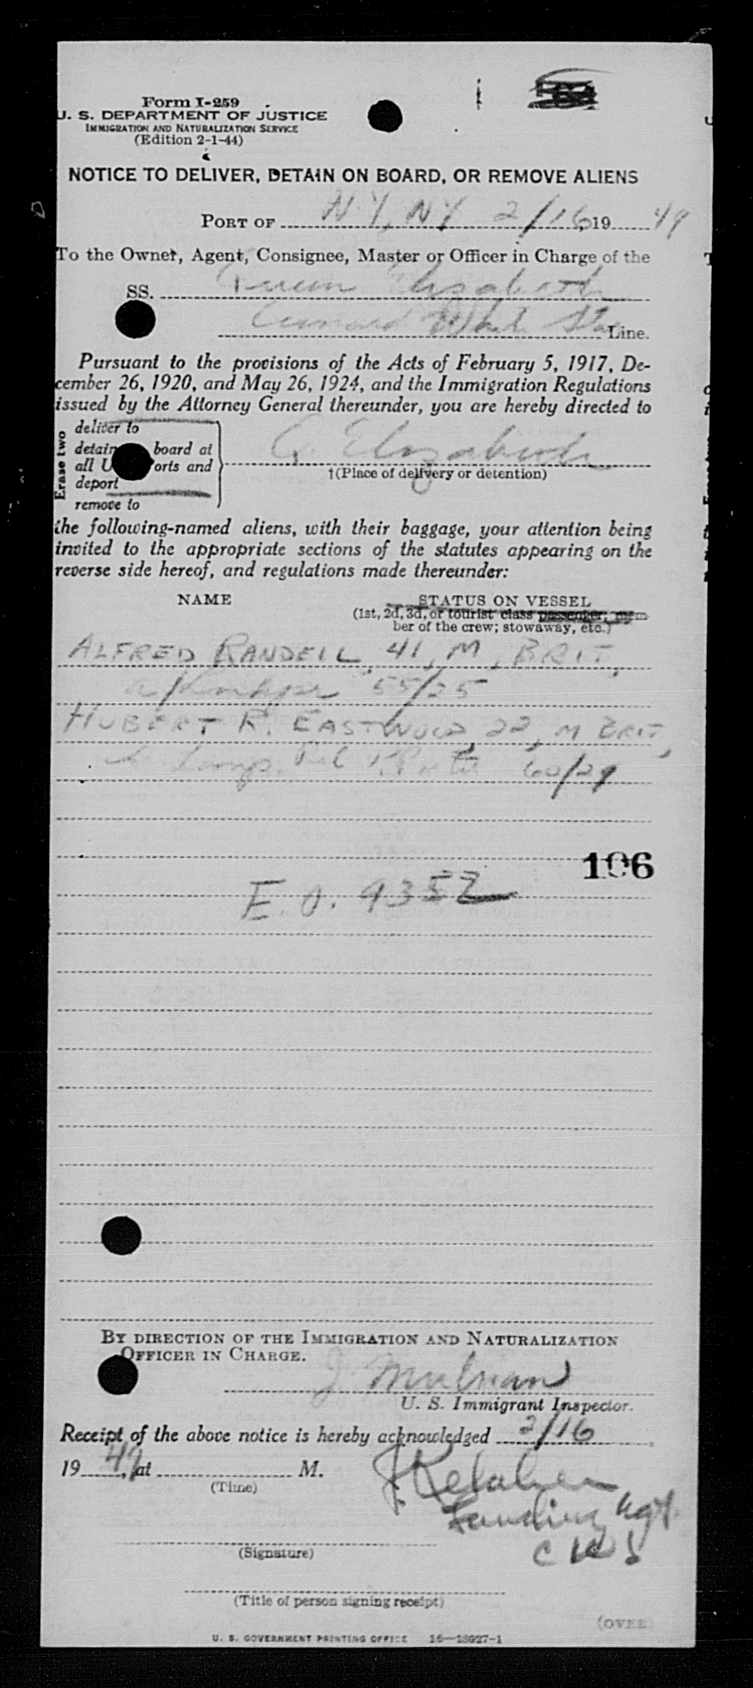 Form I-259
U. S. DEPARTMENT OF JUSTICE
IMMIGRATION AND NATURALIZATION SERVICE
(Edition 2-1-44)
NOTICE TO DELIVER, DETAIN ON BOARD, OR REMOVE ALIENS
PORT OF N.Y., NY 2/16 19 49
To the Owner, Agent, Consignee, Master or Officer in Charge of the
SS. Queen Elizabeth
Cunard White Star Line.
Pursuant to the provisions of the Acts of February 5, 1917, De-
cember 26, 1920, and May 26, 1924, and the Immigration Regulations
issued by the Attorney General thereunder, you are hereby directed to
Erase two
deliver to
detain board at
all U orts and
deport
remove to
Q. Elizabeth
†(Place of delivery or detention)
the following-named aliens, with their baggage, your attention being
invited to the appropriate sections of the statutes appearing on the
reverse side hereof, and regulations made thereunder:
NAME STATUS ON VESSEL
(1st, 2d, 3d, or tourist class passenger, mem-
ber of the crew; stowaway, etc.)
ALFRED RANDELL, 41, M, BRIT,
55/25
HUBERT R. EASTWOOD 22, M BRIT,
60/29
106
E.O. 9352
BY DIRECTION OF THE IMMIGRATION AND NATURALIZATION
OFFICER IN CHARGE.
U. S. Immigrant Inspector.
Receipt of the above notice is hereby acknowledged 2/16
19 49, at M.
(Time)
Landing Agt.
C W S
(Signature)
(Title of person signing receipt)
(OVER)
U. S. GOVERNMENT PRINTING OFFICE 16—18927-1